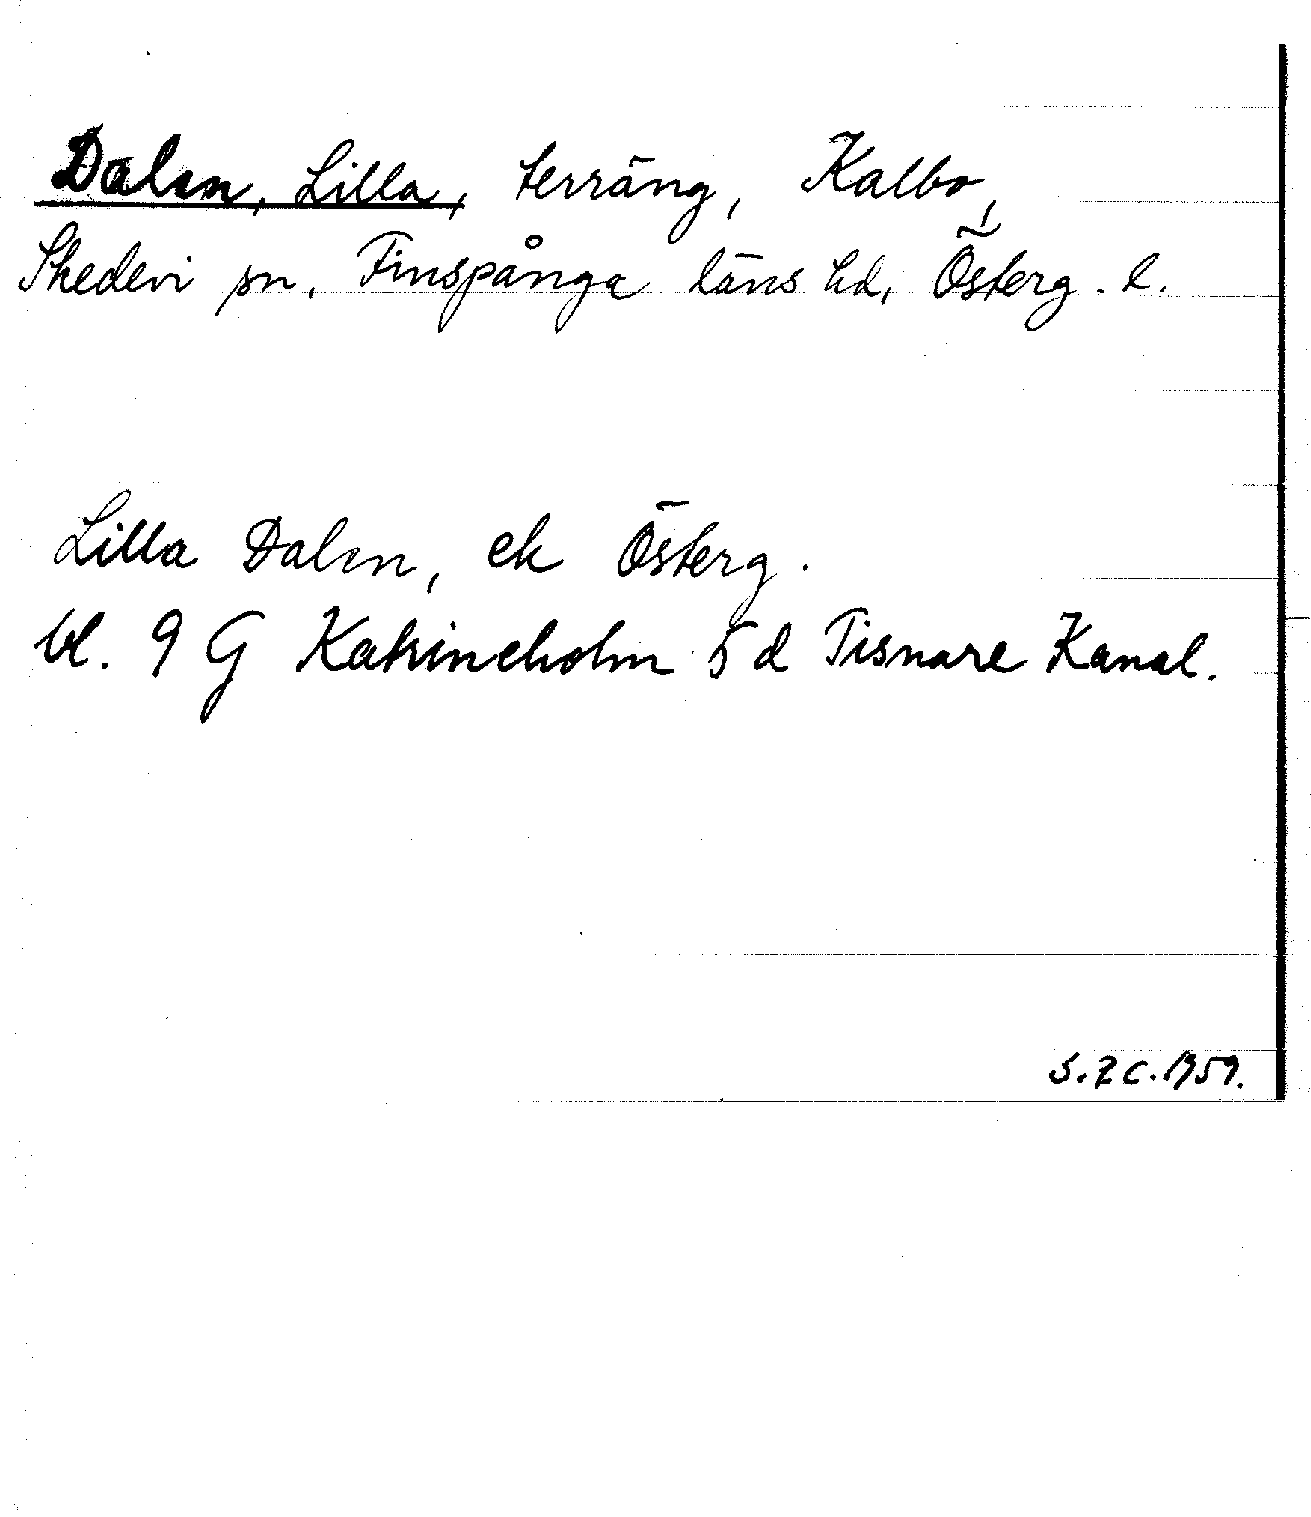 Dalen, Lilla, terräng, Kalbo,
Skedevi sn, Finspånga läns hd, Österg. l.
Lilla Dalen, ek Österg.
bl. 9 G Katrineholm 5 d Tisnare Kanal.
1959.